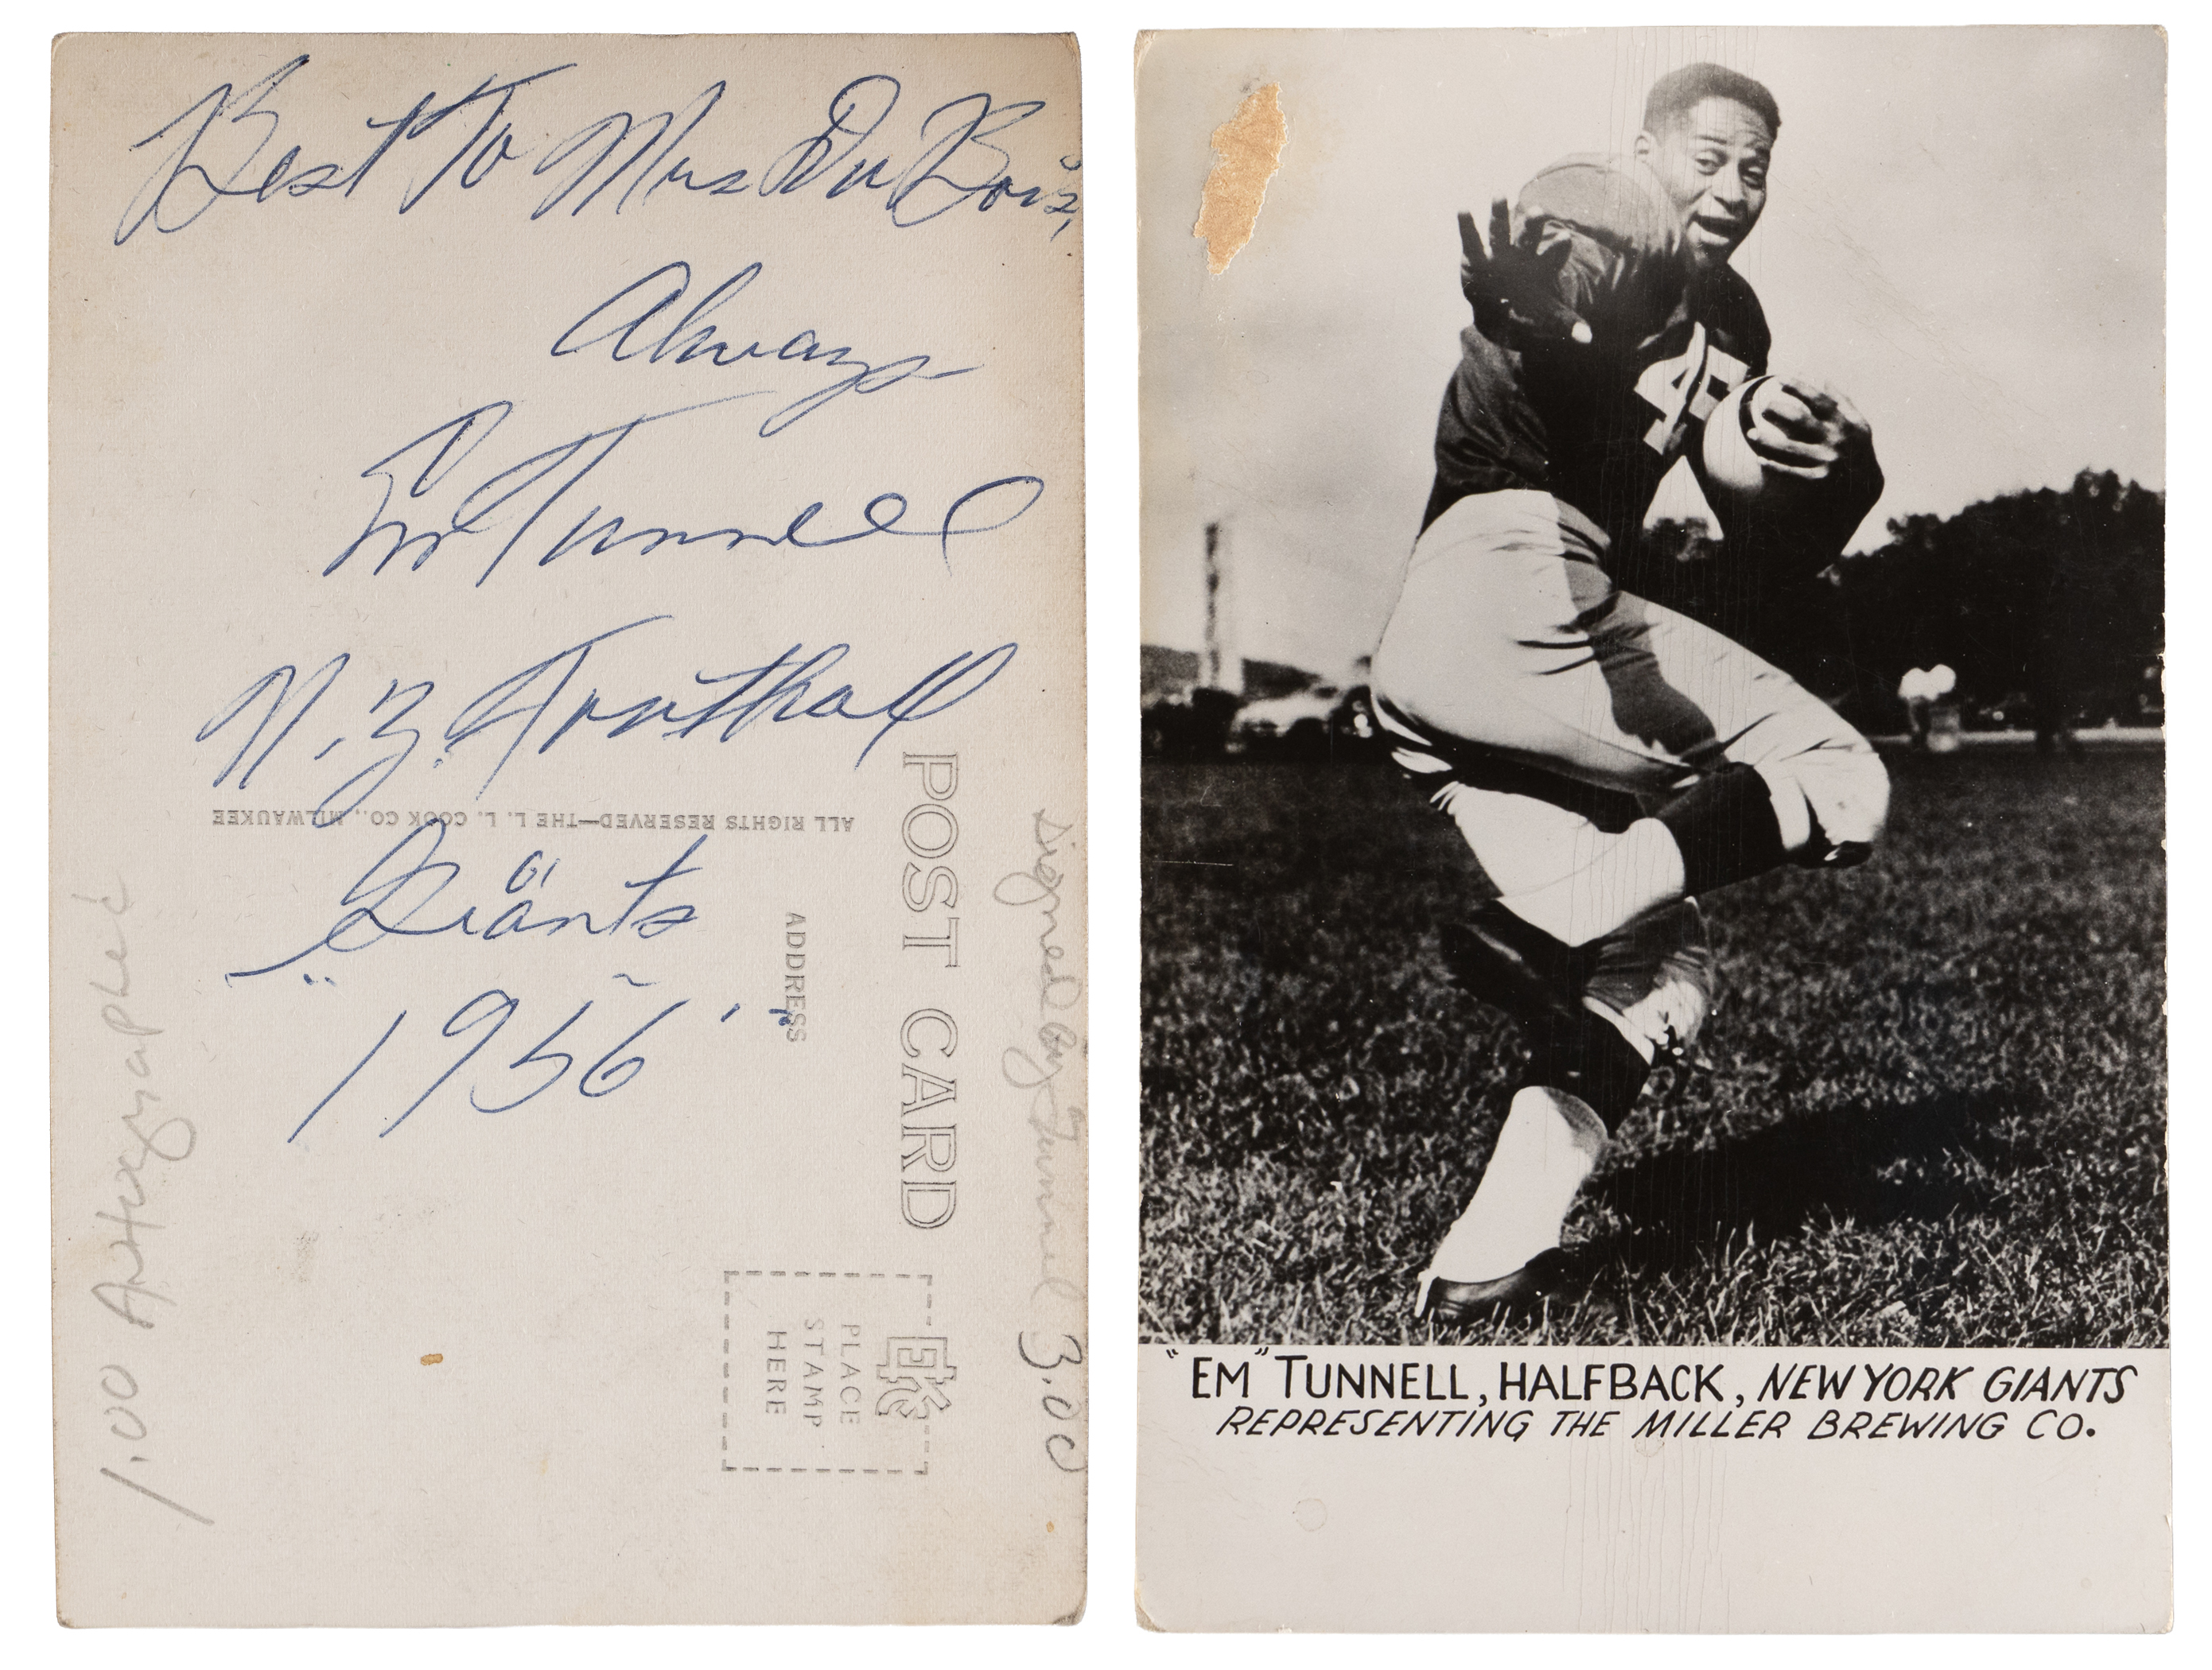 Best To Mrs Du Bois,
Always
Em Tunnell
N.Y. Football
Giants
1956
ALL RIGHTS RESERVED—THE L. L. COOK CO., MILWAUKEE
POST CARD
ADDRESS
EKC
PLACE
STAMP
HERE
Signed by Tunnel 3.00
1.00 Autographed
45
"EM" TUNNELL, HALFBACK, NEW YORK GIANTS
REPRESENTING THE MILLER BREWING CO.